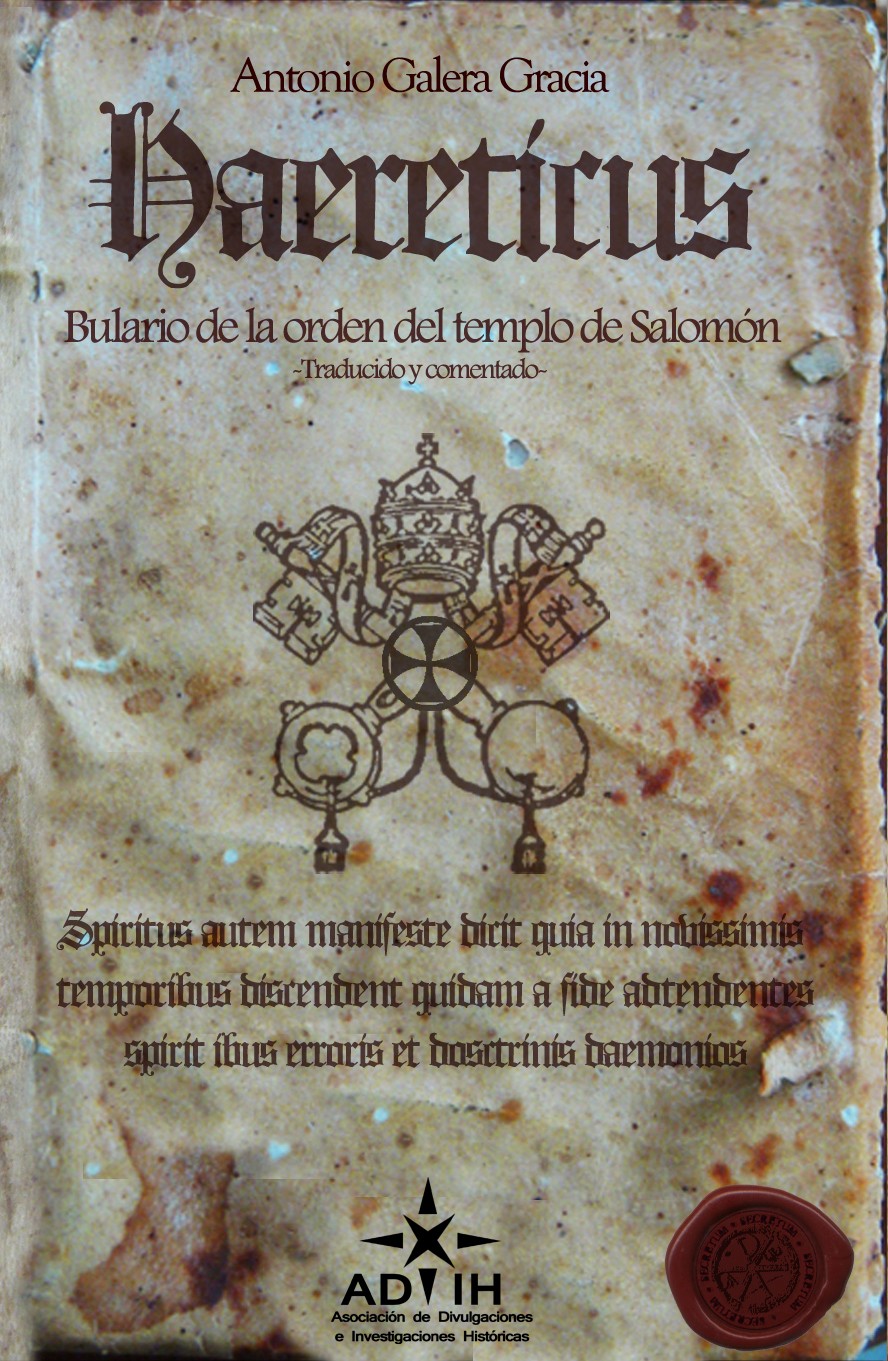 Antonio Galera Gracia
Haereticus
Bulario de la orden del templo de Salomón
~Traducido y comentado~
Spiritus autem manifeste dicit quia in novissimis
temporibus discendent quidam a fide adtendentes
spirit ibus erroris et dosctrinis daemonios
ADIH
Asociación de Divulgaciones
e Investigaciones Históricas
SECRETUM SECRETUM SECRETUM